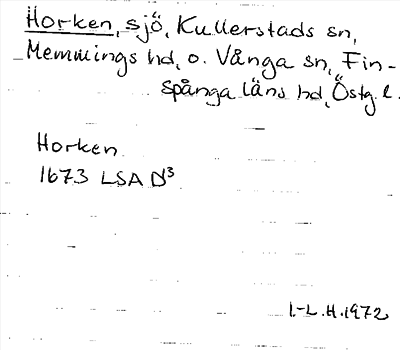 Horken, sjö, Kullerstads sn,
Memmings hd, o. Vånga sn, Fin-
spånga läns hd, Östg. l.
Horken
1673 LSA D³
I.-L.H. 1972